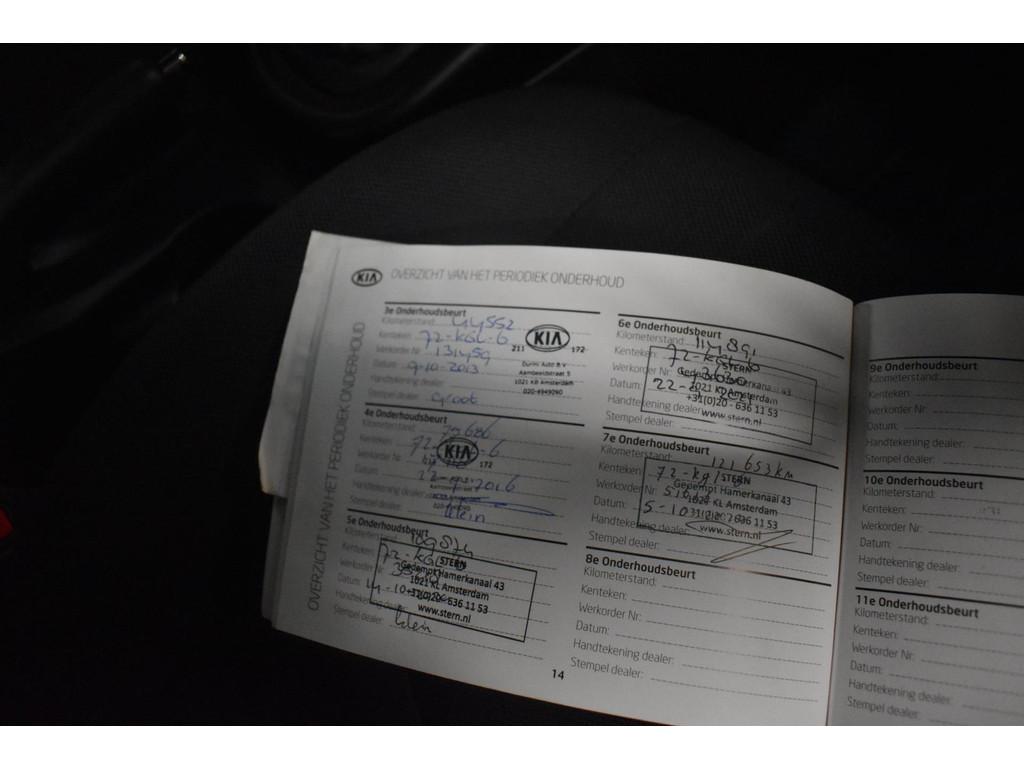 KIA OVERZICHT VAN HET PERIODIEK ONDERHOUD
OVERZICHT VAN HET PERIODIEK ONDERHOUD
3e Onderhoudsbeurt
Kilometerstand: 44552
Kenteken: 72-KGL-6
Werkorder Nr: 131459
Datum: 9-10-2013
Handtekening dealer:
Stempel dealer: Groot
211 KIA 172
Durini Auto B.V.
Aambeeldstraat 5
1021 KB Amsterdam
020-4949090
4e Onderhoudsbeurt
Kilometerstand:
Kenteken: 72
Werkorder Nr:
Datum: 22
Handtekening dealer:
Stempel dealer: klein
KIA
172
5e Onderhoudsbeurt
Kilometerstand:
Kenteken: 72-KGL-6
Werkorder Nr:
Datum: 14-10
Handtekening dealer:
Stempel dealer: klein
STERN
Gedempt Hamerkanaal 43
1021 KL Amsterdam
+31(0)20 - 636 11 53
www.stern.nl
14
6e Onderhoudsbeurt
Kilometerstand:
Kenteken: 72-KGL-6
Werkorder Nr:
Datum: 22
Handtekening dealer:
Stempel dealer:
STERN
Gedempt Hamerkanaal 43
Amsterdam
+31(0)20 - 636 11 53
www.stern.nl
7e Onderhoudsbeurt
Kilometerstand: 121653km
Kenteken: 72-kgl-6
Werkorder Nr:
Datum: 5-10
Handtekening dealer:
Stempel dealer:
STERN
Gedempt Hamerkanaal 43
1021 KL Amsterdam
636 11 53
www.stern.nl
8e Onderhoudsbeurt
Kilometerstand:
Kenteken:
Werkorder Nr:
Datum:
Handtekening dealer:
Stempel dealer:
9e Onderhoudsbeurt
Kilometerstand:
Kenteken:
Werkorder Nr:
Datum:
Handtekening dealer:
Stempel dealer:
10e Onderhoudsbeurt
Kilometerstand:
Kenteken:
Werkorder Nr:
Datum:
Handtekening dealer:
Stempel dealer:
11e Onderhoudsbeurt
Kilometerstand:
Kenteken:
Werkorder Nr:
Datum:
Handtekening dealer:
Stempel dealer: